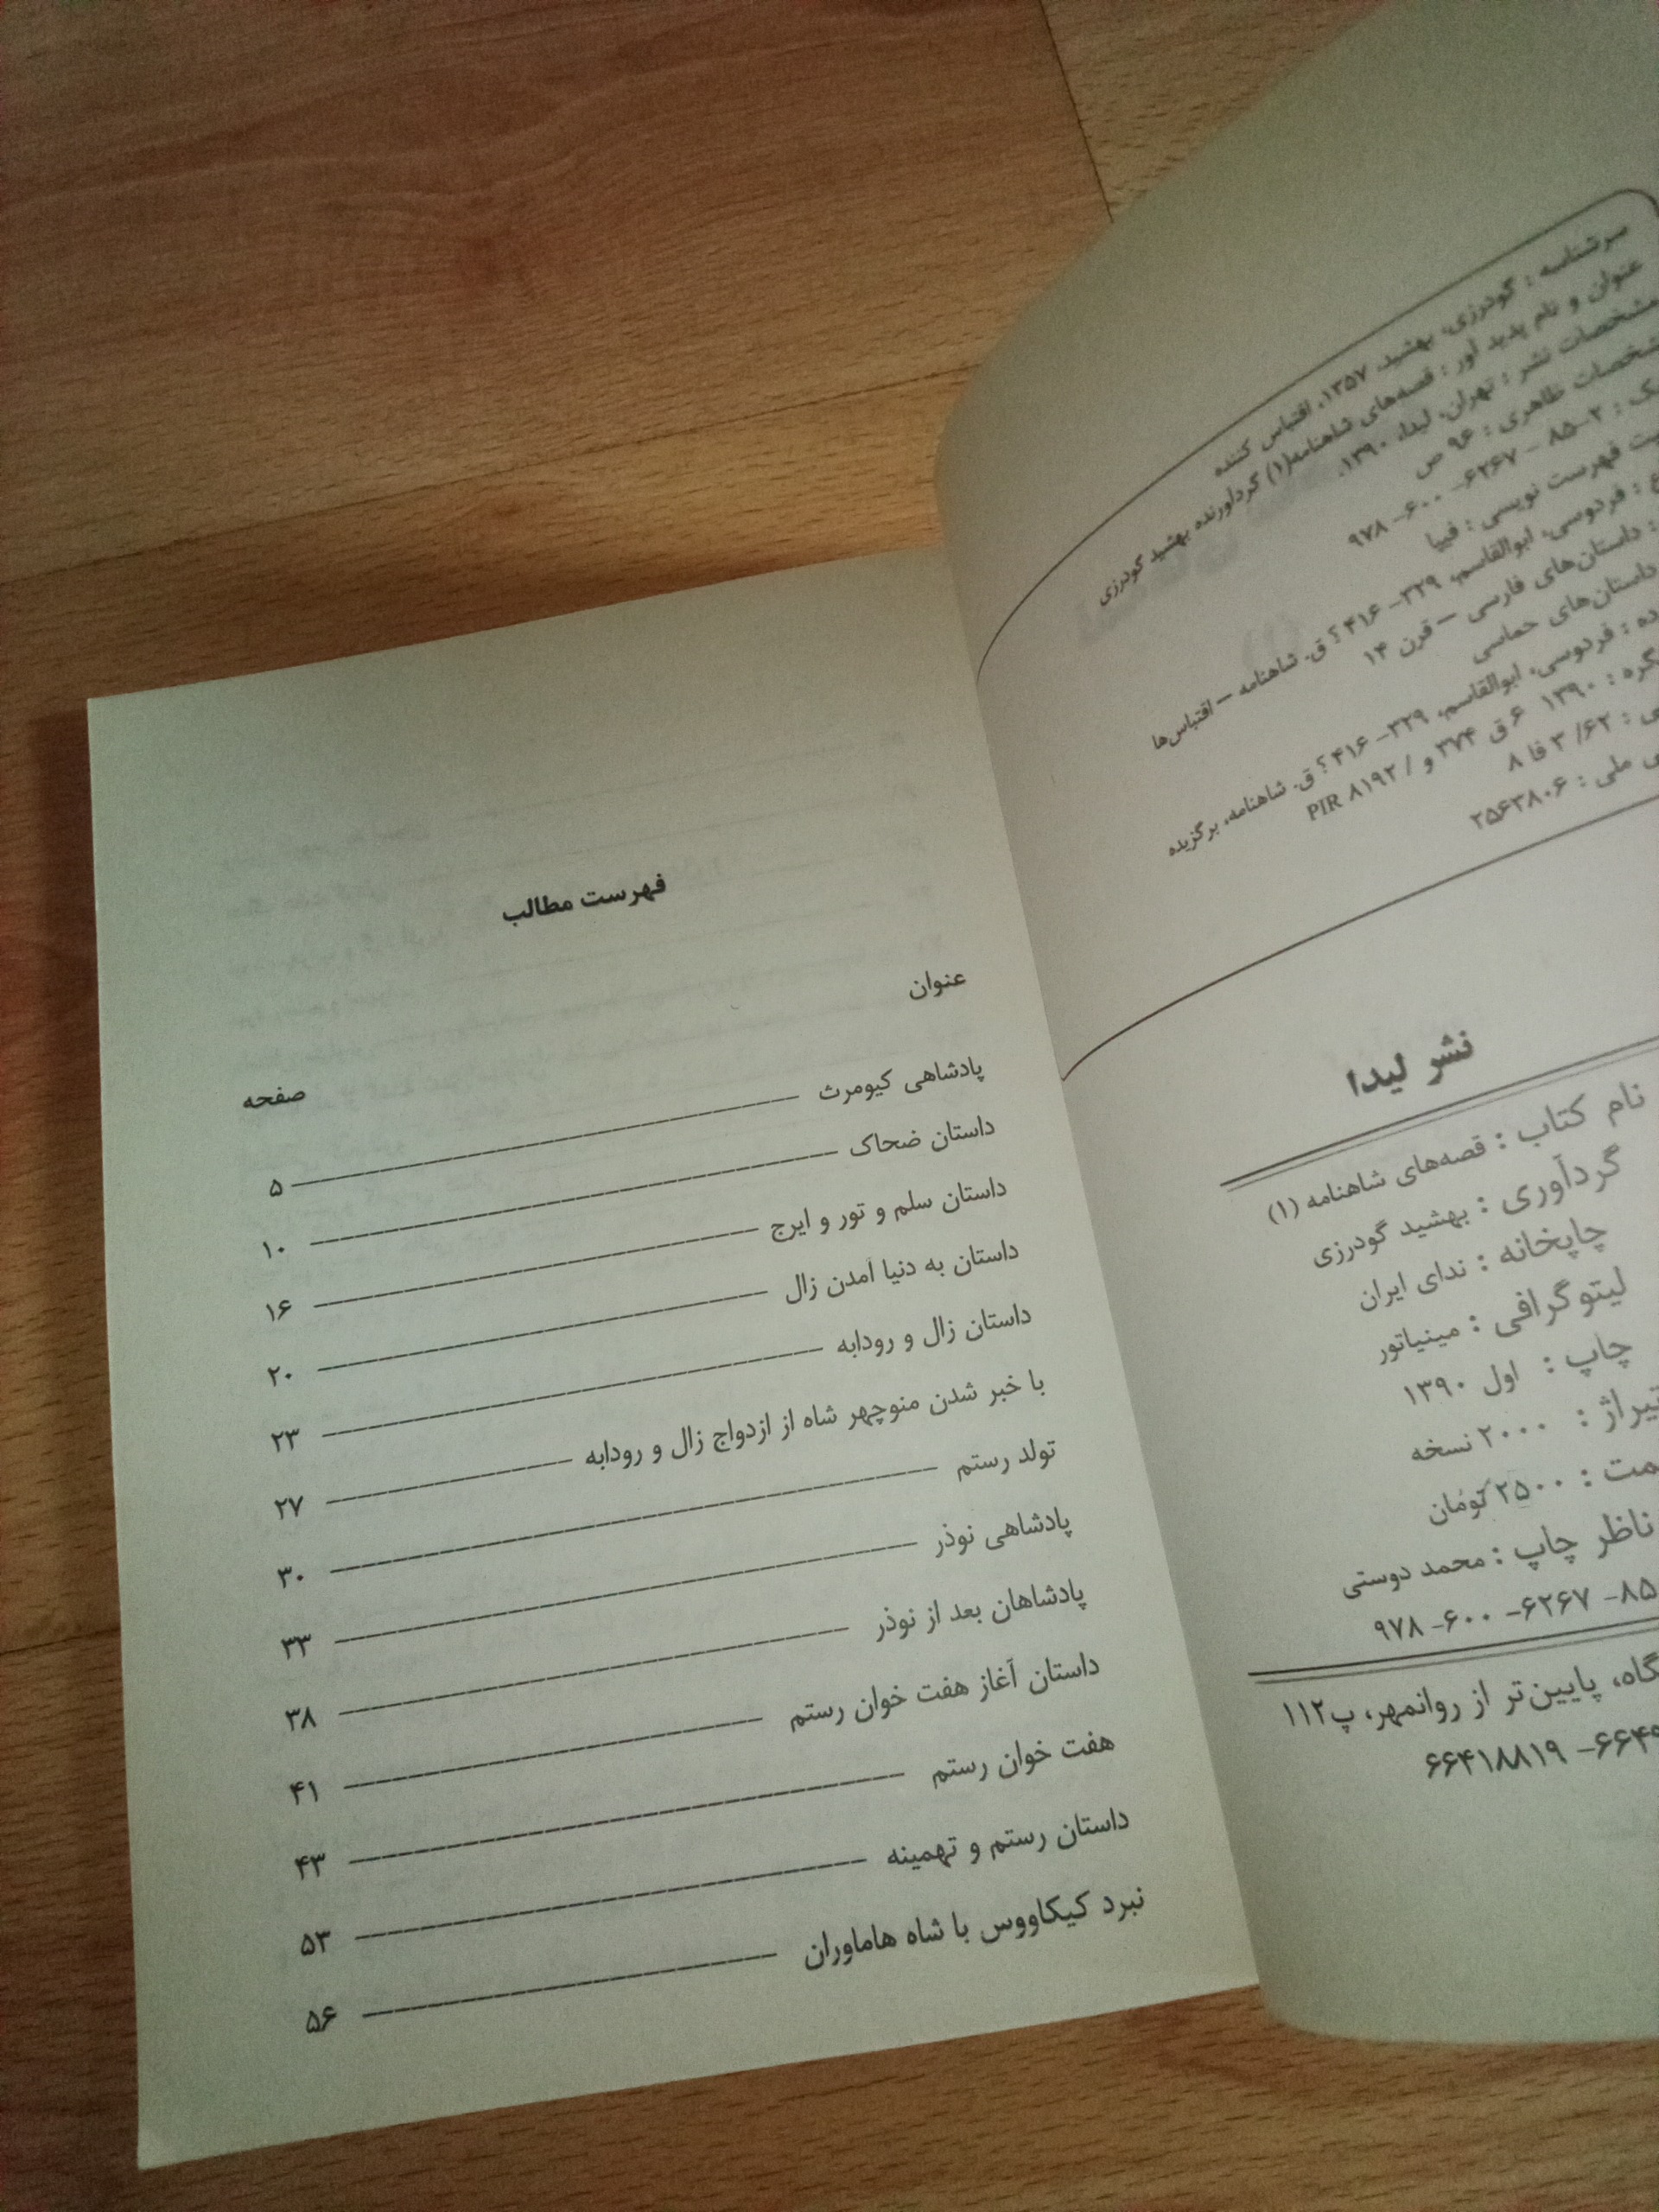 سرشناسه : گودرزی، بهشید، ۱۳۵۷، اقتباس کننده
عنوان و نام پدید آور : قصه‌های شاهنامه(۱) گردآورنده بهشید گودرزی
مشخصات نشر : تهران، لیدا، ۱۳۹۰.
مشخصات ظاهری : ۹۶ ص
۹۷۸ -۶۰۰ -۶۲۶۷ - ۸۵-۲ :
فهرست نویسی : فیپا
: فردوسی، ابوالقاسم، ۳۲۹- ۴۱۶ ؟ ق. شاهنامه – اقتباس‌ها
: داستان‌های فارسی – قرن ۱۴
داستان‌های حماسی
: فردوسی، ابوالقاسم، ۳۲۹- ۴۱۶ ؟ ق. شاهنامه، برگزیده
: ۱۳۹۰ ۶ ق ۳۷۴ و / PIR ۸۱۹۲
: ۶۲/ ۳ فا ۸
ملی : ۲۵۶۳۸۰۶
نشر لیدا
نام کتاب : قصه‌های شاهنامه (۱)
گردآوری : بهشید گودرزی
چاپخانه : ندای ایران
لیتوگرافی : مینیاتور
چاپ : اول ۱۳۹۰
تیراژ : ۲۰۰۰ نسخه
: ۲۵۰۰ تومان
ناظر چاپ : محمد دوستی
۹۷۸ -۶۰۰ -۶۲۶۷ -۸۵
پایین‌تر از روانمهر، پ۱۱۲
۶۶۴۱۸۸۱۹ -۶۶۴۹
فهرست مطالب
عنوان صفحه
پادشاهی کیومرث ۵
داستان ضحاک ۱۰
داستان سلم و تور و ایرج ۱۶
داستان به دنیا آمدن زال ۲۰
داستان زال و رودابه ۲۳
با خبر شدن منوچهر شاه از ازدواج زال و رودابه ۲۷
تولد رستم ۳۰
پادشاهی نوذر ۳۳
پادشاهان بعد از نوذر ۳۸
داستان آغاز هفت خوان رستم ۴۱
هفت خوان رستم ۴۳
داستان رستم و تهمینه ۵۳
نبرد کیکاووس با شاه هاماوران ۵۶